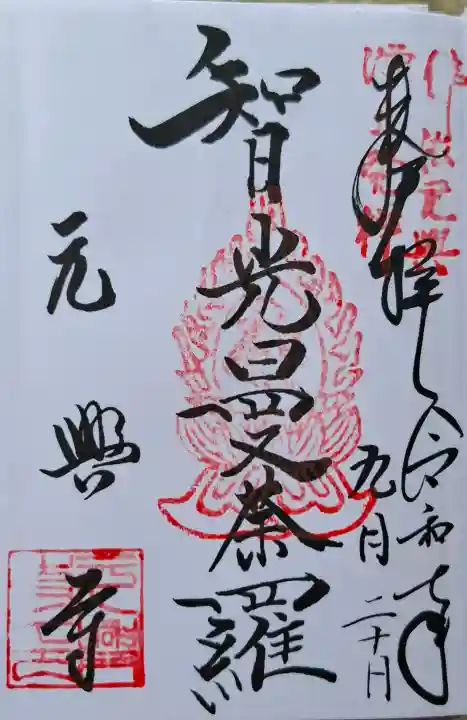 佛法元興
奉拝 令和七年
九月二十日
智光曼荼羅
元興寺